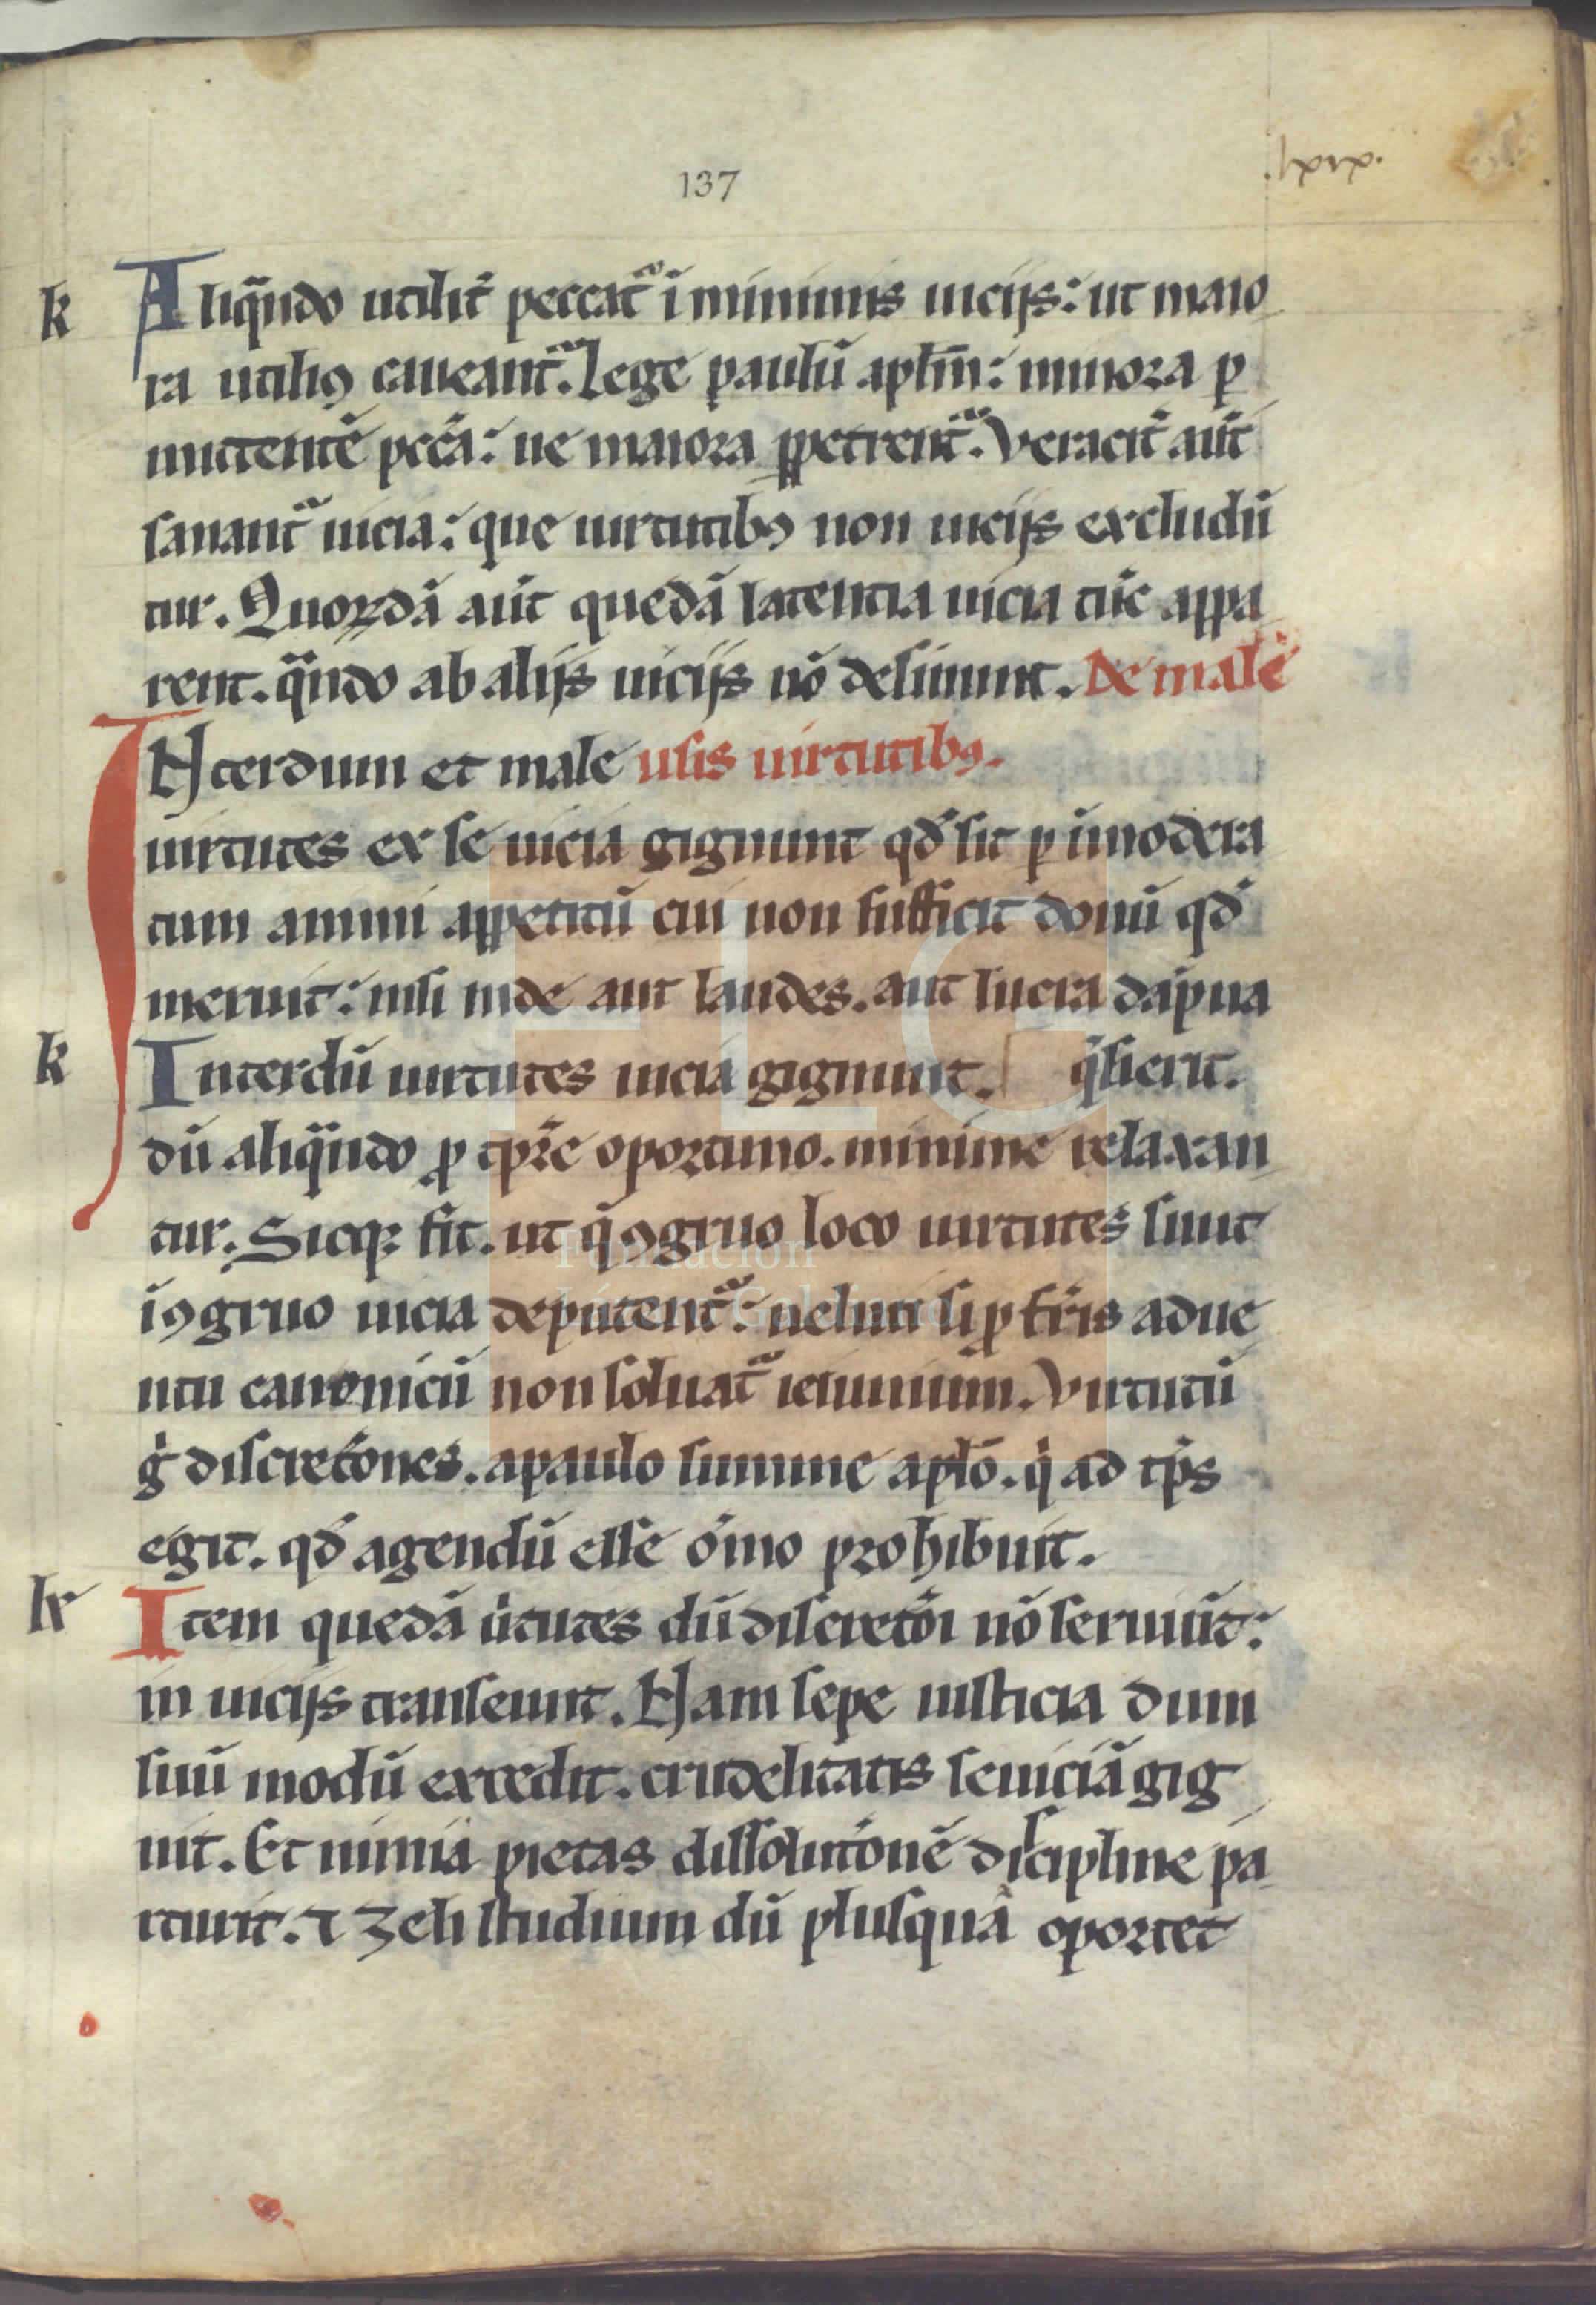 137
.lxix.
k
Aliq̄ndo utilit̄ peccat᷑ ī minimis uicijs: ut maio
ra utiliꝰ caueant᷑. Lege paulū apłm: minora ꝑ
mittentē pccā: ne maiora ꝑpetrent᷑. Veracit̄ aūt
sanant᷑ uicia: que uirtutibꝰ non uicijs excludū
tur. Quorūdā aūt quedā latentia uicia tūc appa
rent. q̄ndo ab alijs uicijs nō desinunt. De male
INterdum et male usis uirtutibꝰ.
uirtutes ex se uicia gignunt qđ fit ꝑ īmodera
tum animi appetitū cui non sufficit donū qđ
meruit: nisi inde aut laudes. aut lucra dāpna
k
Interdū uirtutes uicia gignunt. q̄sierit.
dū aliq̄ndo ꝓ tp̄re oportuno. minime relaxan
tur. Sicqꝫ fit. ut q̄ ꝯgruo loco uirtutes sunt
īꝯgruo uicia deputent᷑: ueluti si ꝓ fr̄is adue
ntu canonicū non soluat᷑ ieiunium. Virtutū
ḡ discretōnes. a paulo summe apłō. q̇ ad tp̄s
egit. qđ agendū esse ōino prohibuit.
k
Item quedā ūtutes dū discretōi nō seruiūt:
in uicijs transeunt. Nam sepe iusticia dum
suū modū excedit. crudelitatis seuiciā gig
nit. Et nimia pietas dissolutōnē discipline pa
rturit. ⁊ zeli studium dū plusquā oportet
FLG
Fundación
Lázaro Galdiano